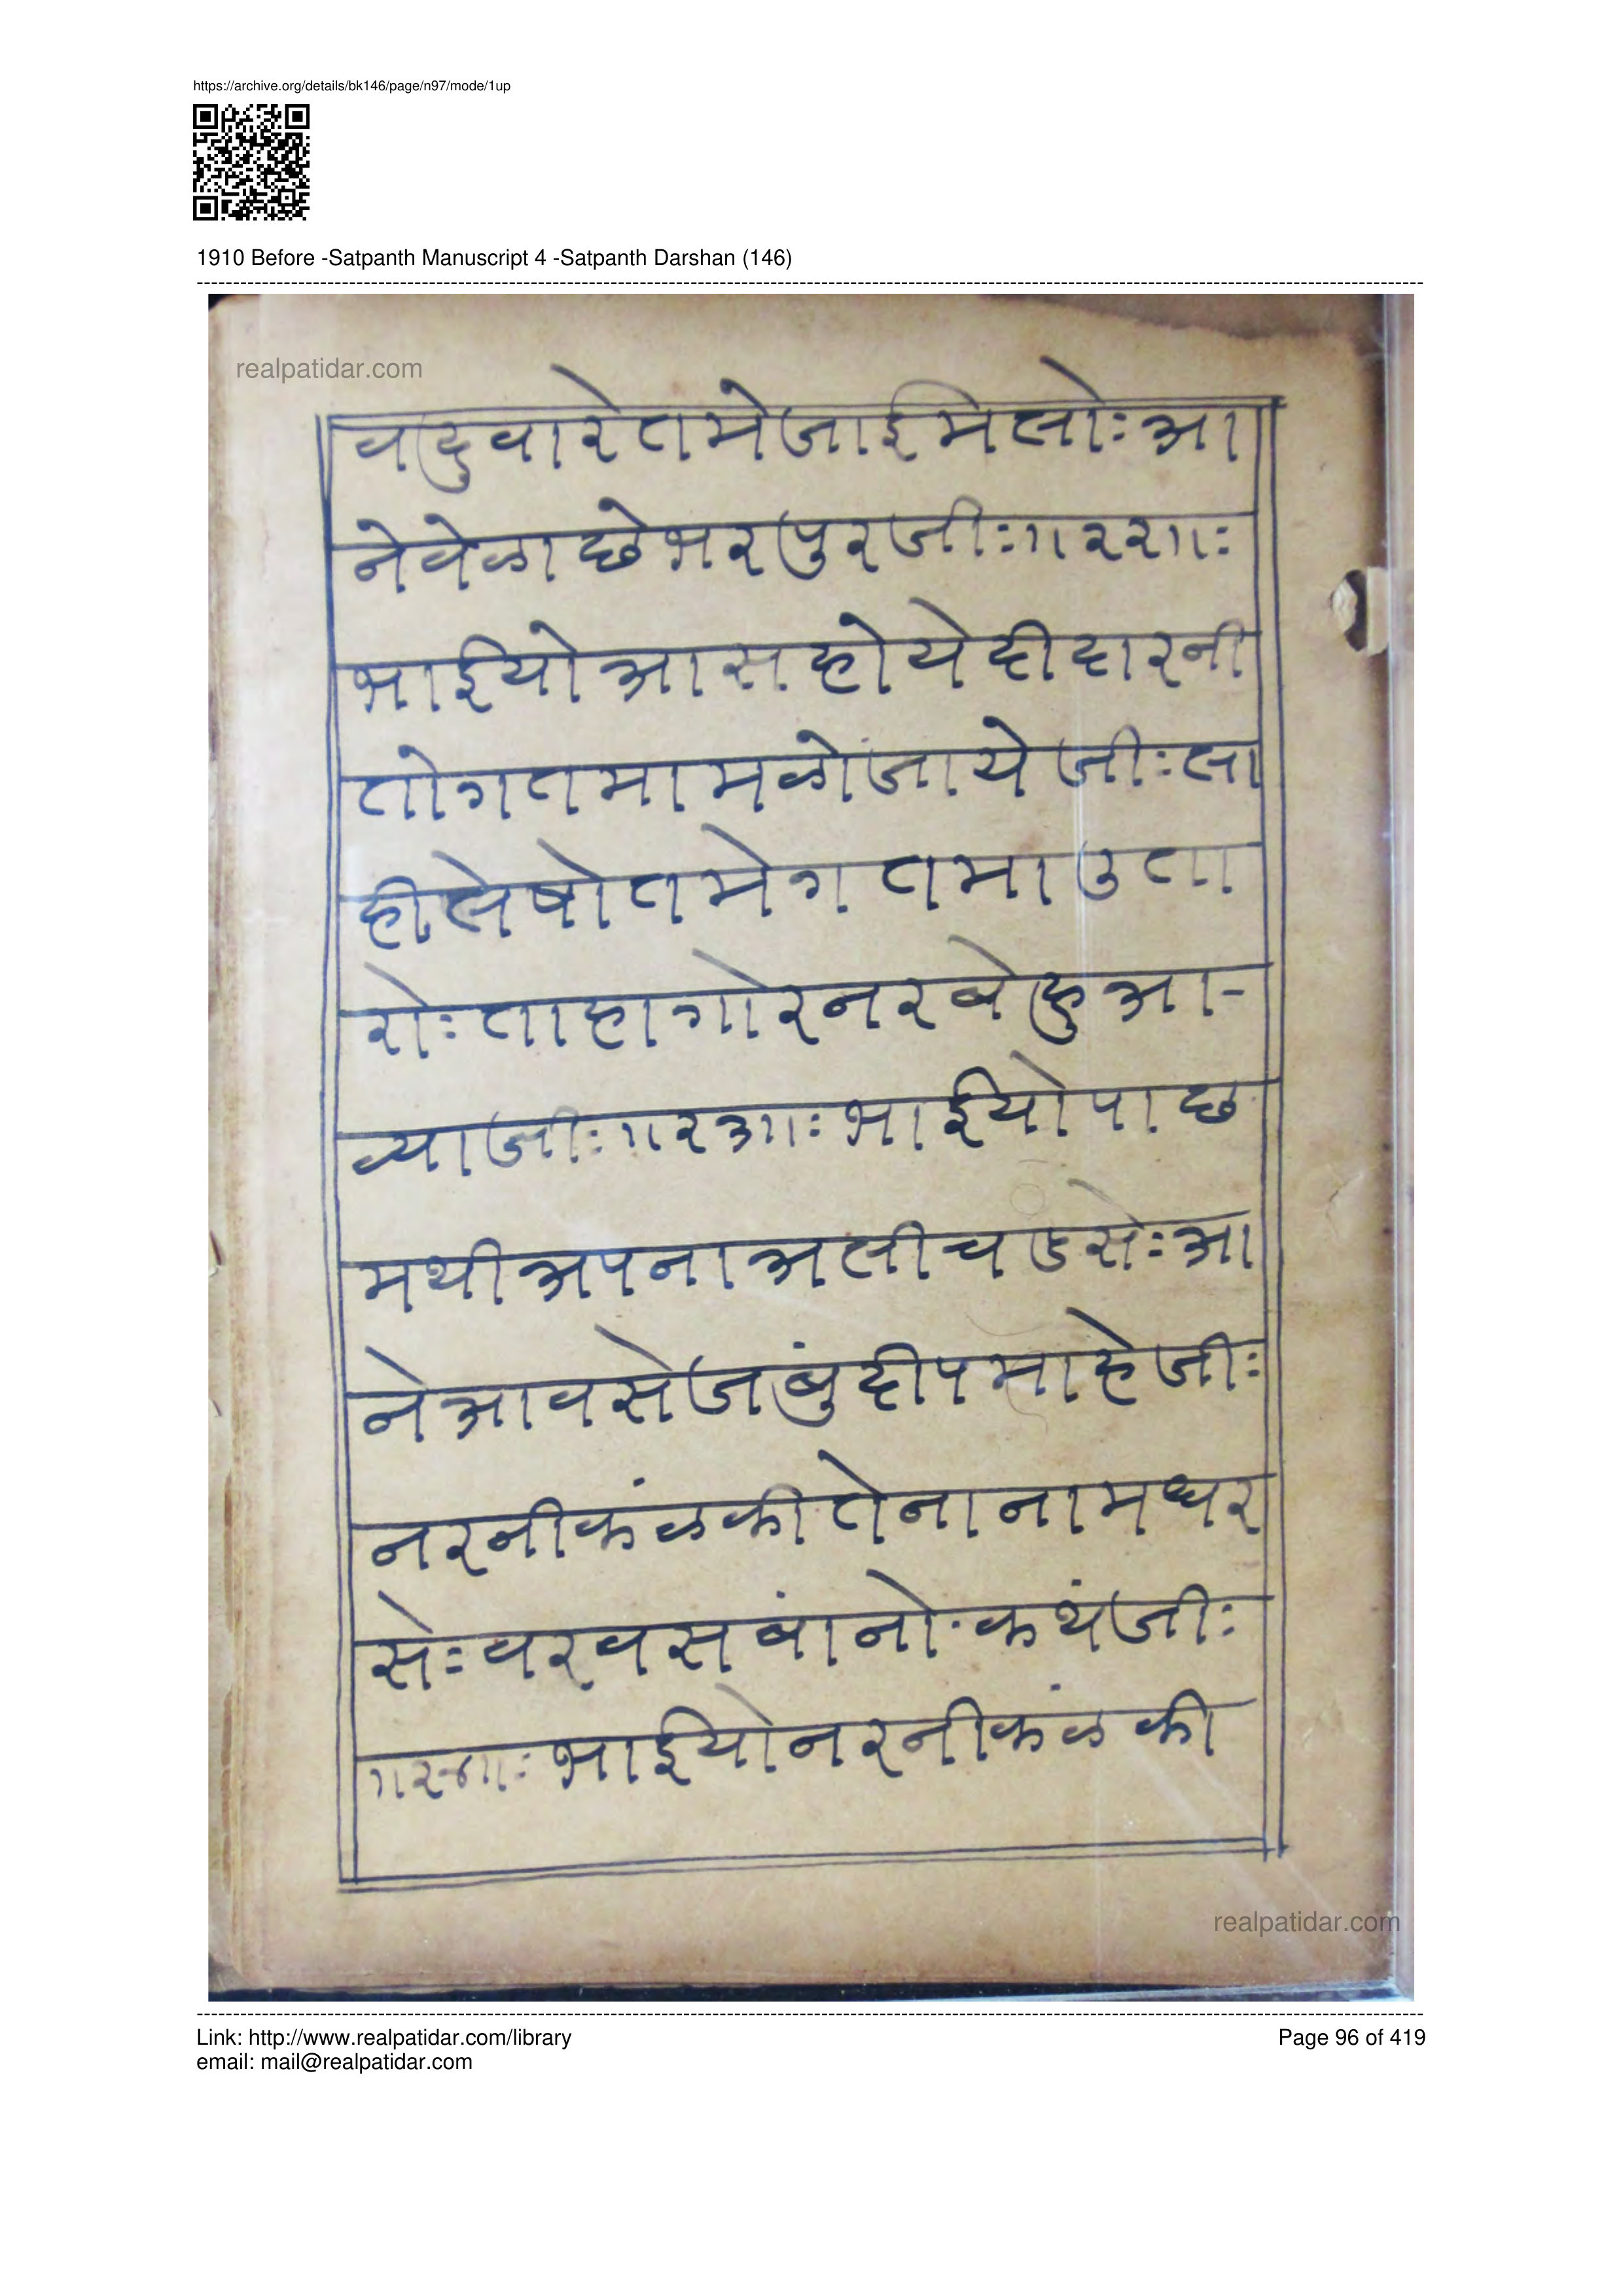 https://archive.org/details/bk146/page/n97/mode/1up
1910 Before -Satpanth Manuscript 4 -Satpanth Darshan (146)
realpatidar.com
वदुवारेतमेजाईमिलोःआ
नेवेळाछेभरपुरजीः॥२२॥ः
भाईयोआसहोयेदीदारनी
तोगतमामळोजाये जीःसा
हीलेषोतमेगतमाउता
रोःताहागोरनरबेहुआ-
व्याजीः॥२३॥ःभाईयोपाछ
मथीअपनाअलीचडसेःआ
नेआवसेजबुंदीपमाहेजीः
नरनीकंळकीतेनानामधर
सेःवरवसबांनोकथंजीः
॥२४॥ःभाईयोनरनीकंळकी
realpatidar.com
Link: http://www.realpatidar.com/library
Page 96 of 419
email: mail@realpatidar.com